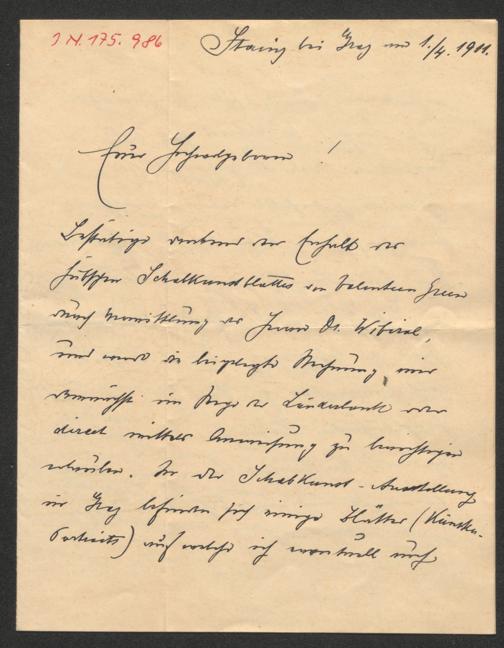 J. N. 175.986
Stainz bei Graz am 1./4. 1911.
Euer Hochwohlgeboren!
Bestätige dankend den Erhalt des
hübschen Schabkunstblattes von Valentin Green
durch Vermittlung des Herrn Dr. Wibiral,
und werde die beigelegte Rechnung mir
demnächst im Wege der Länderbank oder
direct mittels Anweisung zu berichtigen
erlauben. In der Schabkunst-Ausstellung
in Graz befinden sich einige Blätter (Künstler-
Portraits) auf welche ich eventuell noch